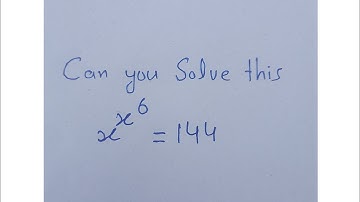 Can you Solve this
x^{x^6} = 144